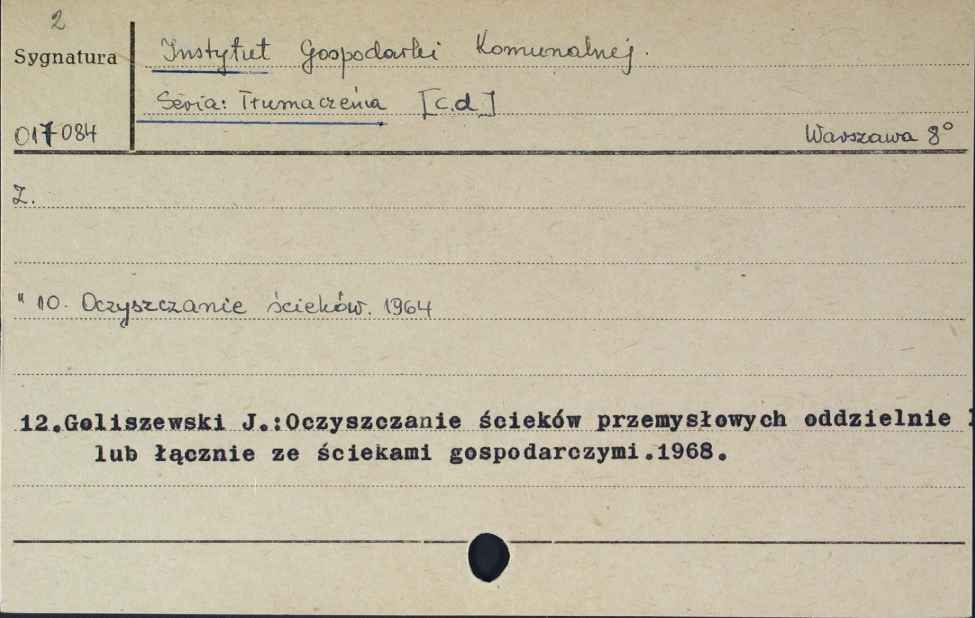 2
Sygnatura
Instytut Gospodarki Komunalnej.
Seria: Tłumaczenia [c.d]
017084
Warszawa 8°
Z.
" 10. Oczyszczanie ścieków. 1964
12.Goliszewski J.:Oczyszczanie ścieków przemysłowych oddzielnie l
lub łącznie ze ściekami gospodarczymi.1968.